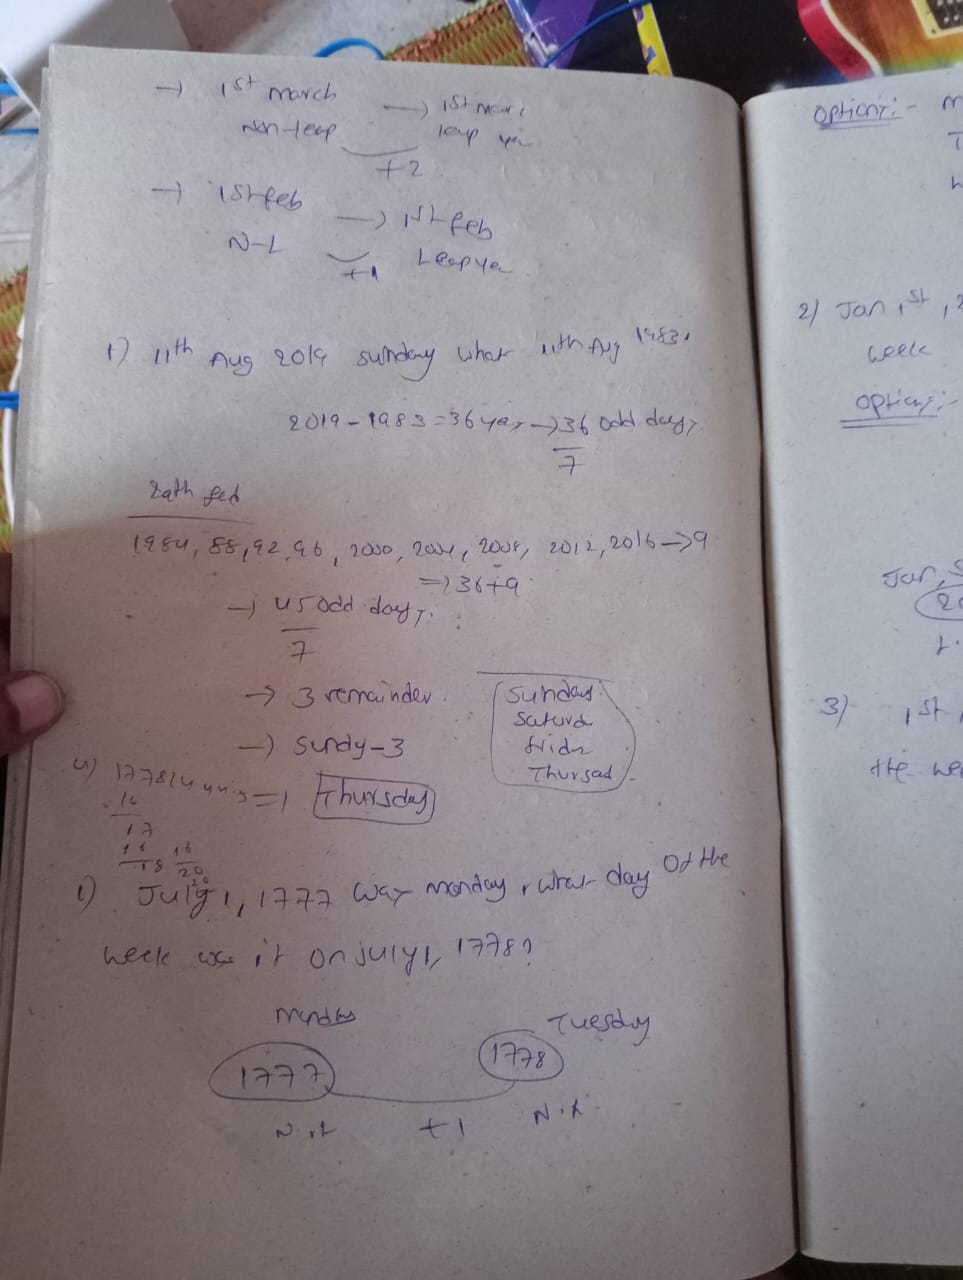 → 1st march → 1st mar
Non-leap leap ye
+2
→ 1st feb → 1st feb
N-L Leap ye
+1
1) 11th Aug 2019 sunday what 11th Aug 1983.
2019-1983=36 yea → 36 odd days.
7
29th feb
1984, 88, 92, 96, 2000, 2004, 2008, 2012, 2016 → 9
⇒ 36+9
→ 45 odd days.
7
→ 3 remainder.
→ Sundy-3
Sunday
Saturd
frida
Thursad
4) 1778 =1 Thursday
16
17
16
18 16
20
20
1) July 1, 1777 was monday, what day of the
week was it on july 1, 1778?
monday Tuesday
1777 1778
N.L +1 N.L
option:- m
2) Jan 1st, 2
week
options:-
Jan,
20
3) 1st
the we